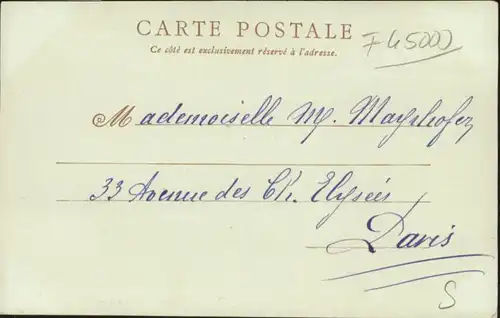 CARTE POSTALE
Ce côté est exclusivement réservé à l'adresse.
F 45000
Mademoiselle M. Mayrhofer
33 Avenue des Ch. Elysées
Paris
S